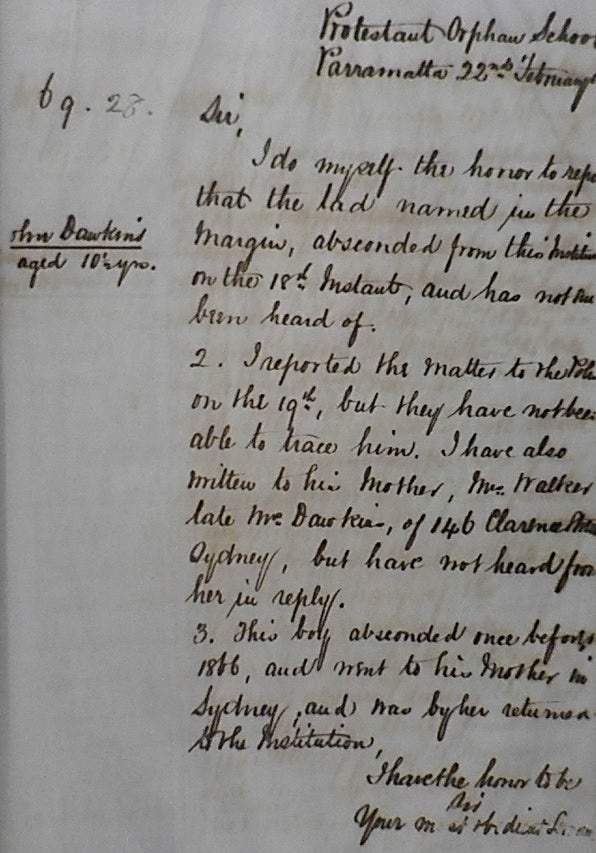 Protestant Orphan School
Parramatta 22nd February
69. 28.
Sir,
I do myself the honor to repo
that the lad named in the
Margin, absconded from this Institu
John Dawkins
aged 10½ yrs.
on the 18th Instant, and has not
been heard of.
2. I reported the matter to the Poli
on the 19th, but they have not bee
able to trace him. I have also
written to his Mother, Mrs. Walker
late Mrs Dawkins, of 146 Clarence Stre
Sydney, but have not heard from
her in reply.
3. This boy absconded once before
1866, and went to his Mother in
Sydney, and was by her returned
to the Institution,
I have the honor to be
Sir
Your most obedient Ser